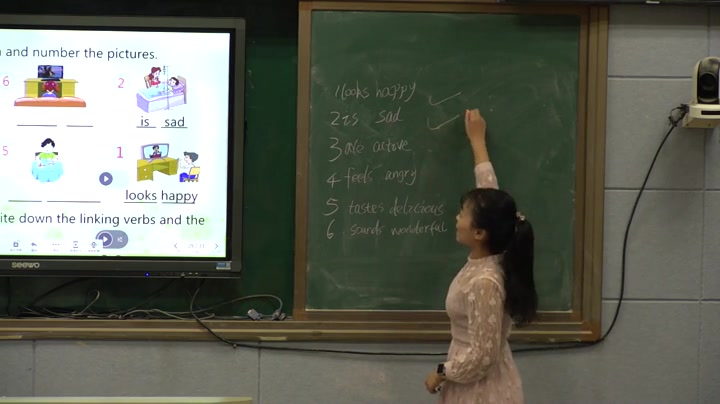 and number the pictures.
6
2
is sad
5
1
looks happy
ite down the linking verbs and the
seewo
1 looks happy
2 is sad
3 are active
4 feels angry
5 tastes delicious
6 sounds wonderful